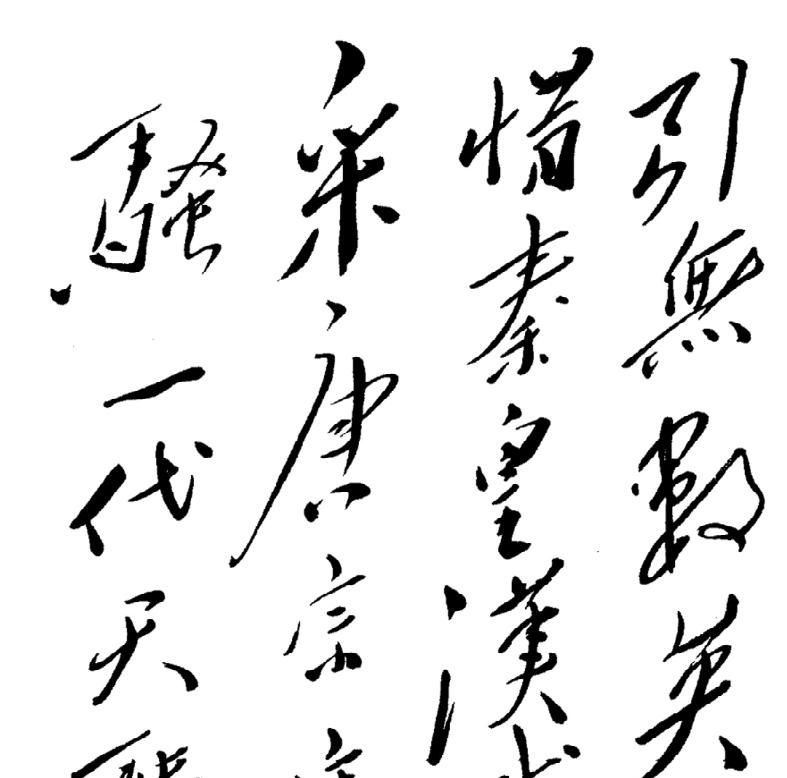 引無數英
惜秦皇漢武
采唐宗宋
騷一代天驕